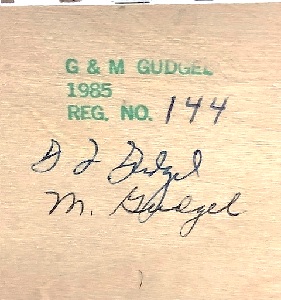 G & M GUDGEL
1985
REG. NO. 144
G J Gudgel
M. Gudgel